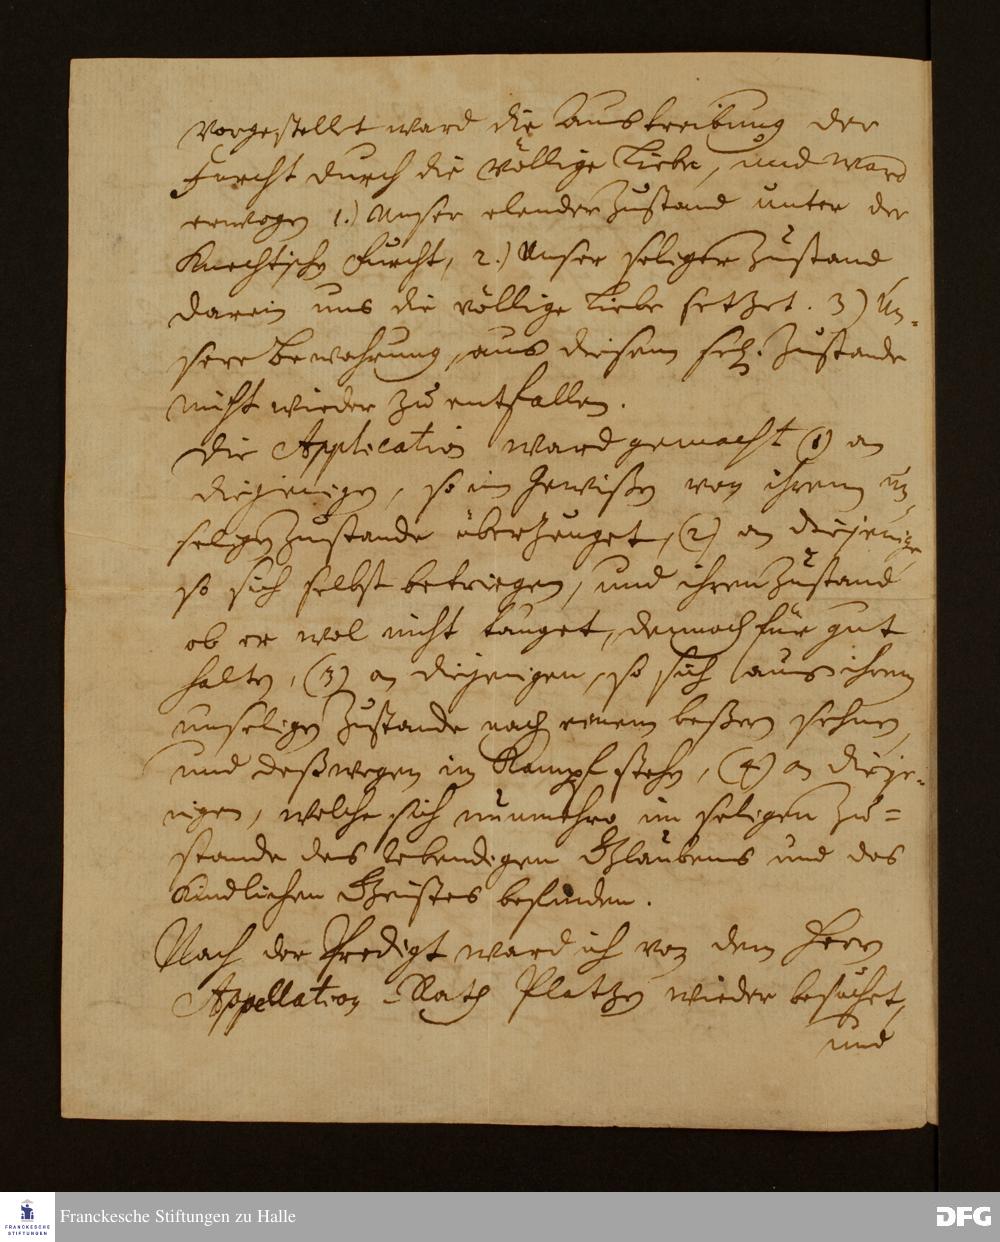 vorgestellet ward die Austreibung der
Furcht durch die völlige Liebe, und ward
erwogen 1.) Unser elender Zustand unter der
Knechtischen Furcht, 2.) Unser seliger Zustand
darein uns die völlige Liebe setzet. 3) Un-
sere Bewahrung, aus diesem sel. Zustande
nicht wieder zu entfallen.
Die Application ward gemacht (1) an
diejenigen, so im Gewißen von ihrem un-
seligen Zustande überzeuget, (2) an diejenige
so sich selbst betriegen, und ihren Zustand
ob er wol nicht tauget, dennoch für gut
halten, (3) an diejenigen, so sich aus ihrem
unseligen Zustande nach einem beßern sehnen,
und deßwegen im Kampf stehen, (4) an dieje-
nigen, welche sich nunmehro im seligen Zu=
stande des lebendigen Glaubens und des
Kindlichen Geistes befinden.
Nach der Predigt ward ich von dem Herrn
Appellation-Rath Platzen wieder besuchet,
und
Franckesche Stiftungen zu Halle
FRANCKESCHE
STIFTUNGEN
DFG